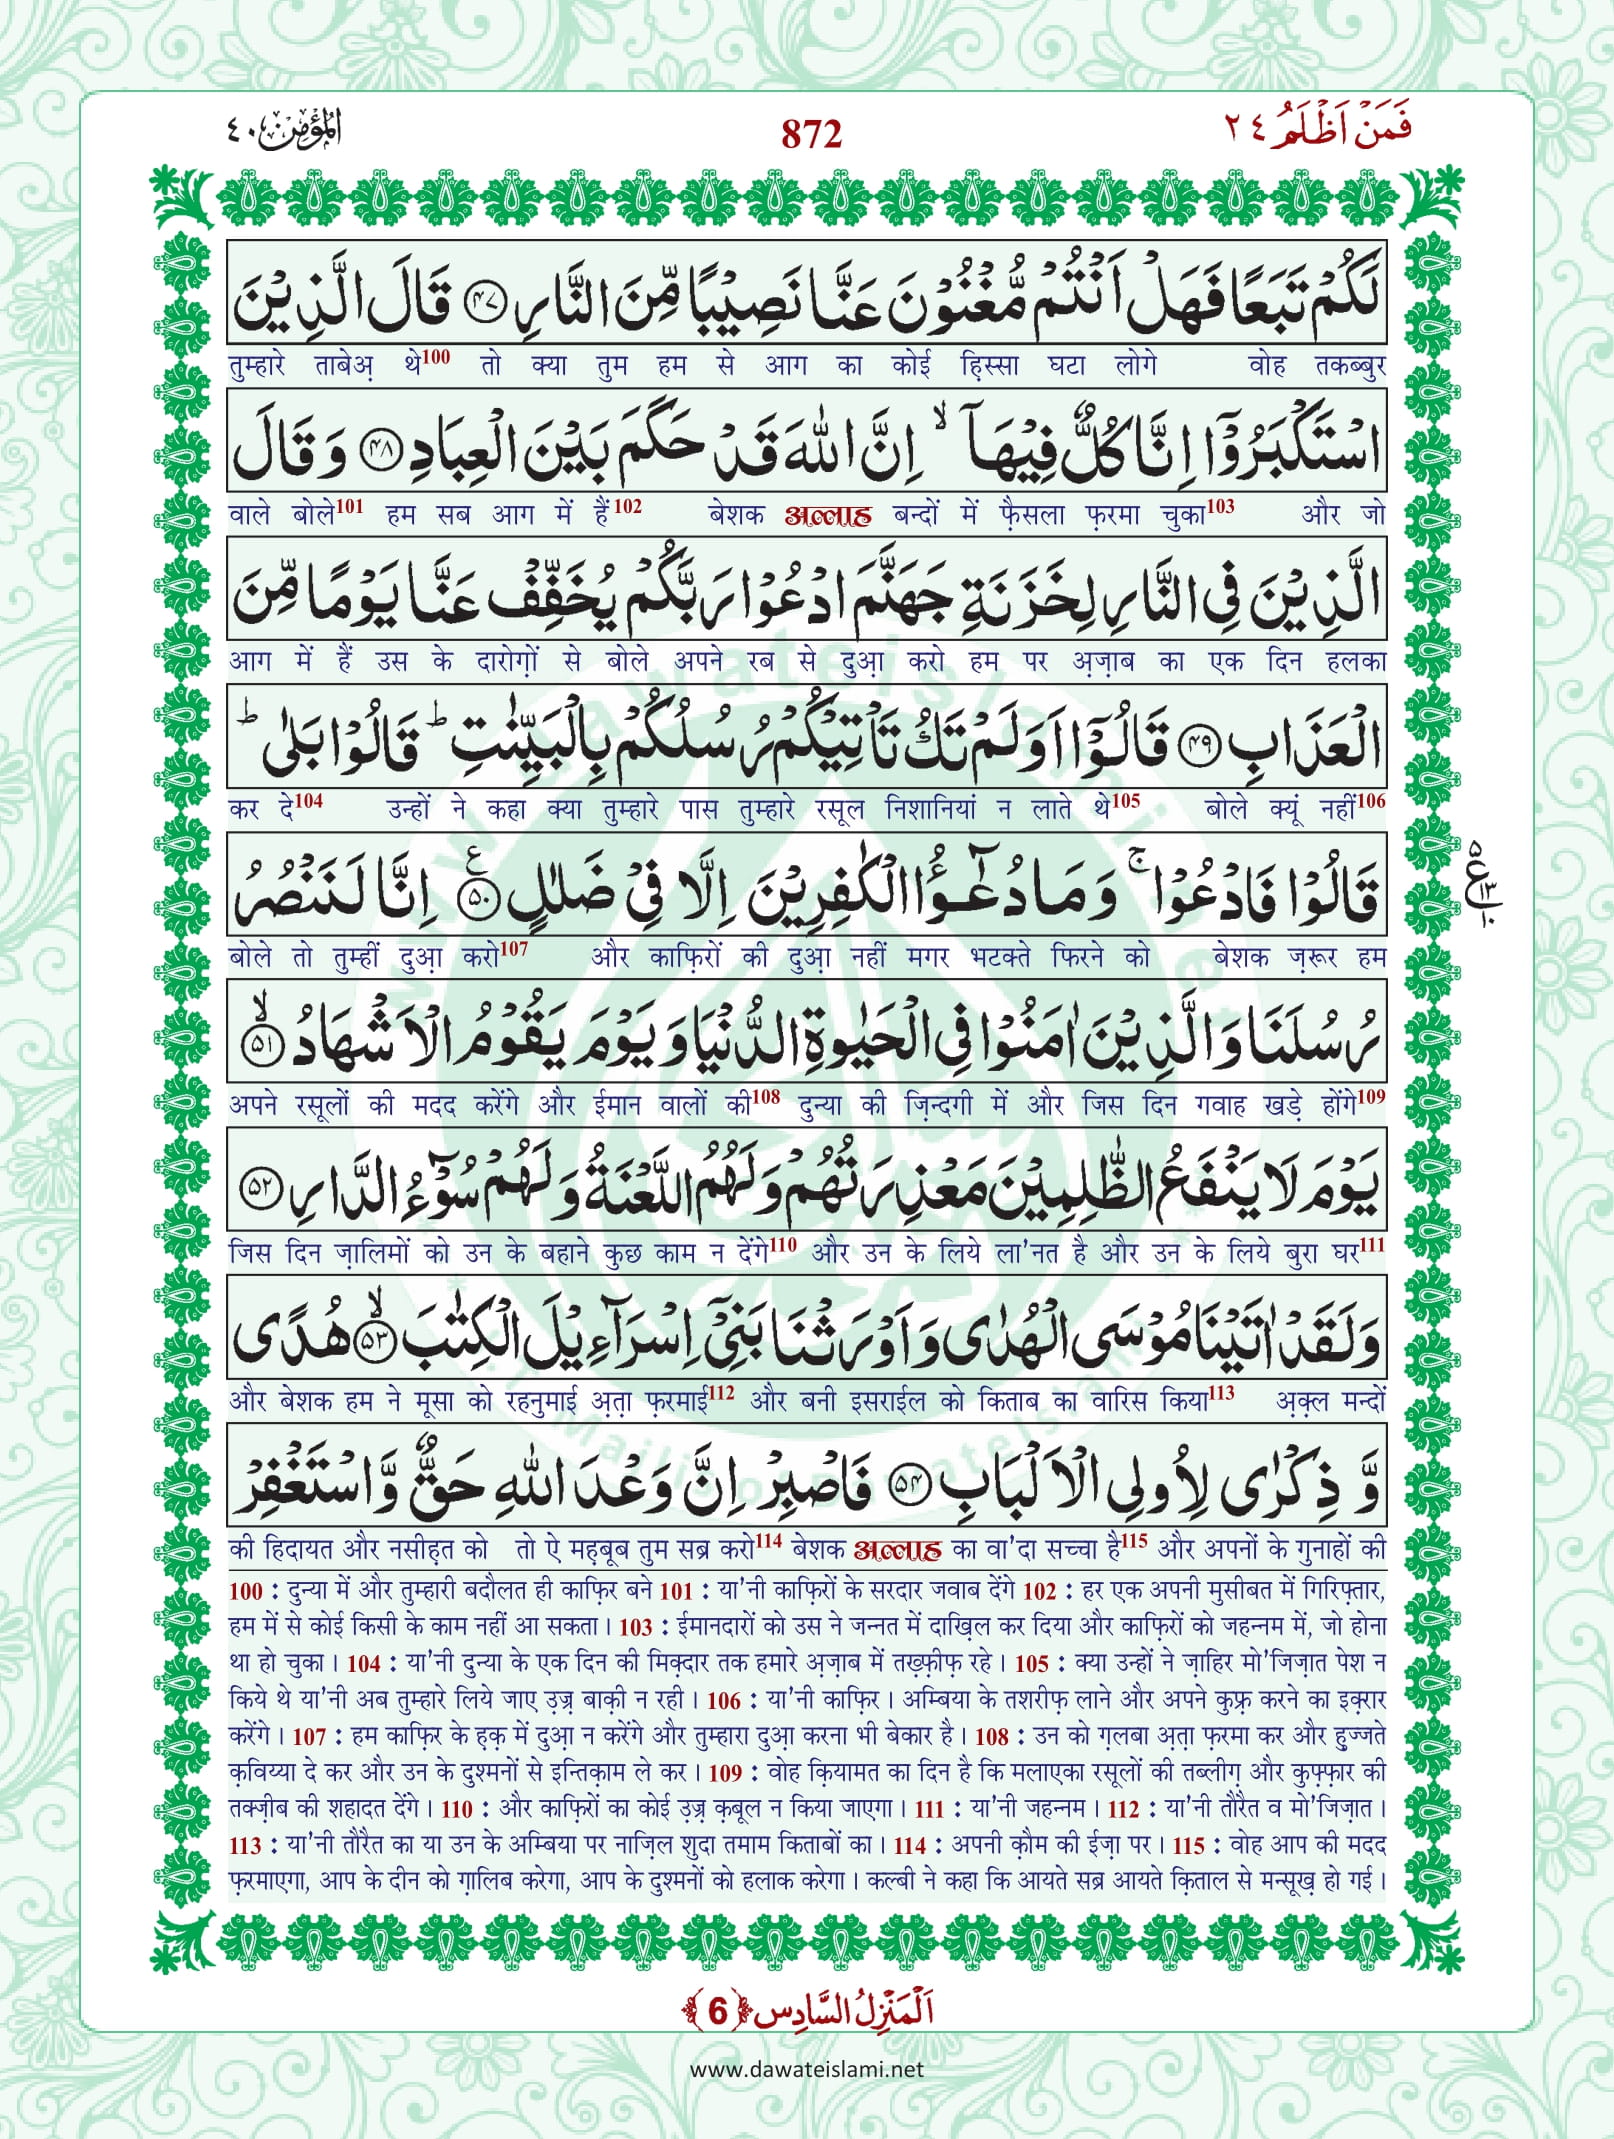 المؤمن ٤٠ 872 فَمَنْ اَظْلَمُ ٢٤
لَكُمْ تَبَعًا فَهَلْ اَنْتُمْ مُّغْنُوْنَ عَنَّا نَصِيْبًا مِّنَ النَّارِ ﴿۴۷﴾ قَالَ الَّذِيْنَ
तुम्हारे ताबेअ़ थे100 तो क्या तुम हम से आग का कोई हि़स्सा घटा लोगे वोह तकब्बुर
اسْتَكْبَرُوْۤا اِنَّا كُلٌّ فِيْهَاۤ ۙ اِنَّ اللّٰهَ قَدْ حَكَمَ بَيْنَ الْعِبَادِ ﴿۴۸﴾ وَ قَالَ
वाले बोले101 हम सब आग में हैं102 बेशक अल्लाह बन्दों में फै़सला फ़रमा चुका103 और जो
الَّذِيْنَ فِى النَّارِ لِخَزَنَةِ جَهَنَّمَ ادْعُوْا رَبَّكُمْ يُخَفِّفْ عَنَّا يَوْمًا مِّنَ
आग में हैं उस के दारोग़ों से बोले अपने रब से दुआ़ करो हम पर अ़ज़ाब का एक दिन हलका
الْعَذَابِ ﴿۴۹﴾ قَالُوْۤا اَوَلَمْ تَكُ تَاْتِيْكُمْ رُسُلُكُمْ بِالْبَيِّنٰتِ ؕ قَالُوْا بَلٰى ؕ
कर दे104 उन्हों ने कहा क्या तुम्हारे पास तुम्हारे रसूल निशानियां न लाते थे105 बोले क्यूं नहीं106
قَالُوْا فَادْعُوْا ۚ وَ مَا دُعٰٓؤُا الْكٰفِرِيْنَ اِلَّا فِىْ ضَلٰلٍ ﴿۵۰﴾ ع اِنَّا لَنَنْصُرُ
ع ۵ ۱۳ ۱۰
बोले तो तुम्हीं दुआ़ करो107 और काफ़िरों की दुआ़ नहीं मगर भटक्ते फिरने को बेशक ज़रूर हम
رُسُلَنَا وَ الَّذِيْنَ اٰمَنُوْا فِى الْحَيٰوةِ الدُّنْيَا وَ يَوْمَ يَقُوْمُ الْاَشْهَادُ ﴿ۙ۵۱﴾
अपने रसूलों की मदद करेंगे और ईमान वालों की108 दुन्या की ज़िन्दगी में और जिस दिन गवाह खड़े होंगे109
يَوْمَ لَا يَنْفَعُ الظّٰلِمِيْنَ مَعْذِرَتُهُمْ وَ لَهُمُ اللَّعْنَةُ وَ لَهُمْ سُوْٓءُ الدَّارِ ﴿۵۲﴾
जिस दिन ज़ालिमों को उन के बहाने कुछ काम न देंगे110 और उन के लिये ला'नत है और उन के लिये बुरा घर111
وَ لَقَدْ اٰتَيْنَا مُوْسَى الْهُدٰى وَ اَوْرَثْنَا بَنِىْۤ اِسْرَآءِيْلَ الْكِتٰبَ ﴿ۙ۵۳﴾ هُدًى
और बेशक हम ने मूसा को रहनुमाई अ़त़ा फ़रमाई112 और बनी इसराईल को किताब का वारिस किया113 अ़क़्ल मन्दों
وَّ ذِكْرٰى لِاُولِى الْاَلْبَابِ ﴿۵۴﴾ فَاصْبِرْ اِنَّ وَعْدَ اللّٰهِ حَقٌّ وَّ اسْتَغْفِرْ
की हिदायत और नसीह़त को तो ऐ मह़बूब तुम सब्र करो114 बेशक अल्लाह का वा'दा सच्चा है115 और अपनों के गुनाहों की
100 : दुन्या में और तुम्हारी बदौलत ही काफ़िर बने 101 : या'नी काफ़िरों के सरदार जवाब देंगे 102 : हर एक अपनी मुसीबत में गिरिफ़्तार,
हम में से कोई किसी के काम नहीं आ सकता । 103 : ईमानदारों को उस ने जन्नत में दाख़िल कर दिया और काफ़िरों को जहन्नम में, जो होना
था हो चुका । 104 : या'नी दुन्या के एक दिन की मिक़्दार तक हमारे अ़ज़ाब में तख़्फ़ीफ़ रहे । 105 : क्या उन्हों ने ज़ाहिर मो'जिज़ात पेश न
किये थे या'नी अब तुम्हारे लिये जाए उ़ज़्र बाक़ी न रही । 106 : या'नी काफ़िर । अम्बिया के तशरीफ़ लाने और अपने कुफ़्र करने का इक़्रार
करेंगे । 107 : हम काफ़िर के ह़क़ में दुआ़ न करेंगे और तुम्हारा दुआ़ करना भी बेकार है । 108 : उन को ग़लबा अ़त़ा फ़रमा कर और हु़ज्जते
क़विय्या दे कर और उन के दुश्मनों से इन्तिक़ाम ले कर । 109 : वोह क़ियामत का दिन है कि मलाएका रसूलों की तब्लीग़ और कुफ़्फ़ार की
तक्ज़ीब की शहादत देंगे । 110 : और काफ़िरों का कोई उ़ज़्र क़बूल न किया जाएगा । 111 : या'नी जहन्नम । 112 : या'नी तौरैत व मो'जिज़ात ।
113 : या'नी तौरैत का या उन के अम्बिया पर नाज़िल शुदा तमाम किताबों का । 114 : अपनी क़ौम की ईज़ा पर । 115 : वोह आप की मदद
फ़रमाएगा, आप के दीन को ग़ालिब करेगा, आप के दुश्मनों को हलाक करेगा । कल्बी ने कहा कि आयते सब्र आयते क़िताल से मन्सूख़ हो गई ।
اَلْمَنْزِلُ السَّادِس ﴿6﴾
www.dawateislami.net